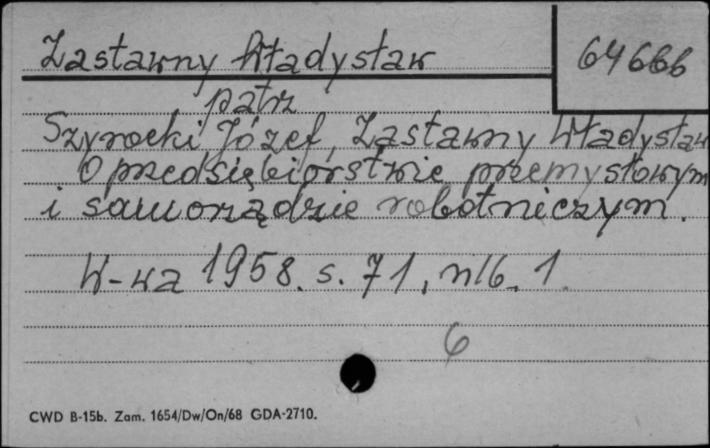 Zastawny Władysław
64666
patrz
Szyrocki Józef, Zastawny Władysław
O przedsiębiorstwie przemysłowym
i samorządzie robotniczym.
W-wa 1958. s. 71, nlb. 1.
6
CWD B-15b. Zam. 1654/Dw/On/68 GDA-2710.